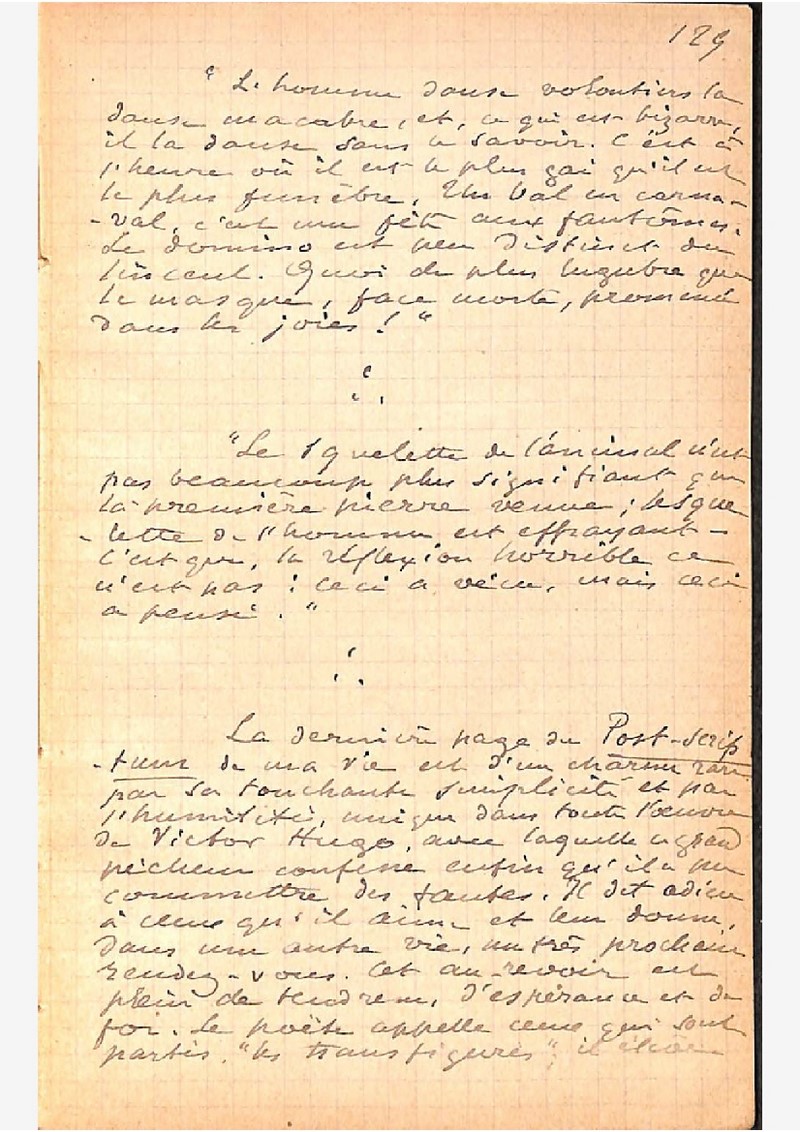 129
" L'homme danse volontiers la
danse macabre, et, ce qui est bizarre,
il la danse sans le savoir. C'est à
l'heure où il est le plus gai qu'il est
le plus funèbre. Un bal en carna-
-val, c'est une fête aux fantômes.
Le domino est peu distinct du
linceul. Quoi de plus lugubre que
le masque, face morte, promenée
dans les joies ! "
"Le squelette de l'animal n'est
pas beaucoup plus signifiant que
la première pierre venue ; le sque
-lette de l'homme est effrayant -
C'est que, la réflexion horrible ce
n'est pas : Ceci a vécu, mais ceci
a pensé . "
La dernière page du Post-scrip
-tum de ma vie est d'un charme rare
par sa touchante simplicité et par
l'humilité, unique dans toute l'œuvre
de Victor Hugo, avec laquelle ce grand
pécheur confesse enfin qu'il a pu
commettre des fautes. Il dit adieu
à ceux qu'il aime et leur donne,
dans une autre vie, un très prochain
rendez-vous. Cet au-revoir est
plein de tendresse, d'espérance et de
foi. Le poëte appelle ceux qui sont
partis, "les transfigurés", il